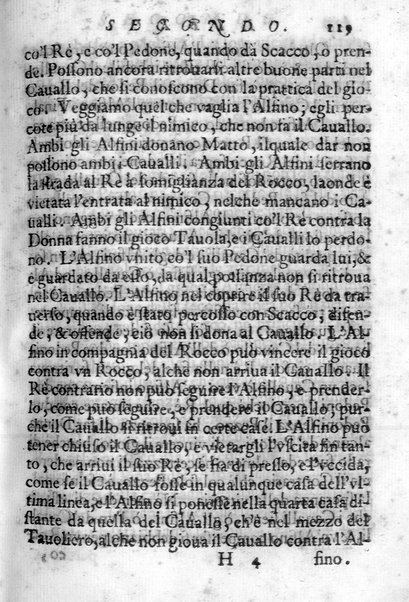 SECONDO. 119
co'l Rè, e co'l Pedone, quando dà Scacco, o pren-
de. Possono ancora ritrouarsi altre buone parti nel
Cauallo, che si conoscono con la prattica del gio-
co. Veggiamo quel che vaglia l'Alfino; egli per-
cote più da lunge il nimico, che non fa il Cauallo.
Ambi gli Alfini donano Matto, ilquale dar non
possono ambi i Caualli. Ambi gli Alfini serrano
la strada al Rè à somiglianza del Rocco, laonde è
vietata l'entrata al nimico, nelche mancano i Ca-
ualli. Ambi gli Alfini congiunti co'l Rè contra la
Donna fanno il gioco Tauola, e i Caualli lo perdo-
no. L'Alfino vnito co'l suo Pedone guarda lui, &
è guardato da esso, da qual possanza non si ritroua
nel Cauallo. L'Alfino nel coprire il suo Rè da tra-
uerso, quando è stato percosso con Scacco, difen-
de, & offende, ciò non si dona al Cauallo. L'Al-
fino in compagnia del Rocco può vincere il gioco
contra vn Rocco, alche non arriua il Cauallo. Il
Rè contrario non può seguire l'Alfino, e prender-
lo, come può seguire, e prendere il Cauallo; pur-
che il Cauallo si ritroui in certe case. L'Alfino può
tener chiuso il Cauallo, e vietargli l'vscita fin tan-
to, che arriui il suo Rè, se sia di presso, e l'vccida,
come se il Cauallo fosse in qualunque casa dell'vl-
tima linea, e l'Alfino si ponesse nella quarta casa di-
stante da quella del Cauallo, ch'è nel mezzo del
Tauoliero, alche non gioua il Cauallo contra l'Al-
H 4 fino.